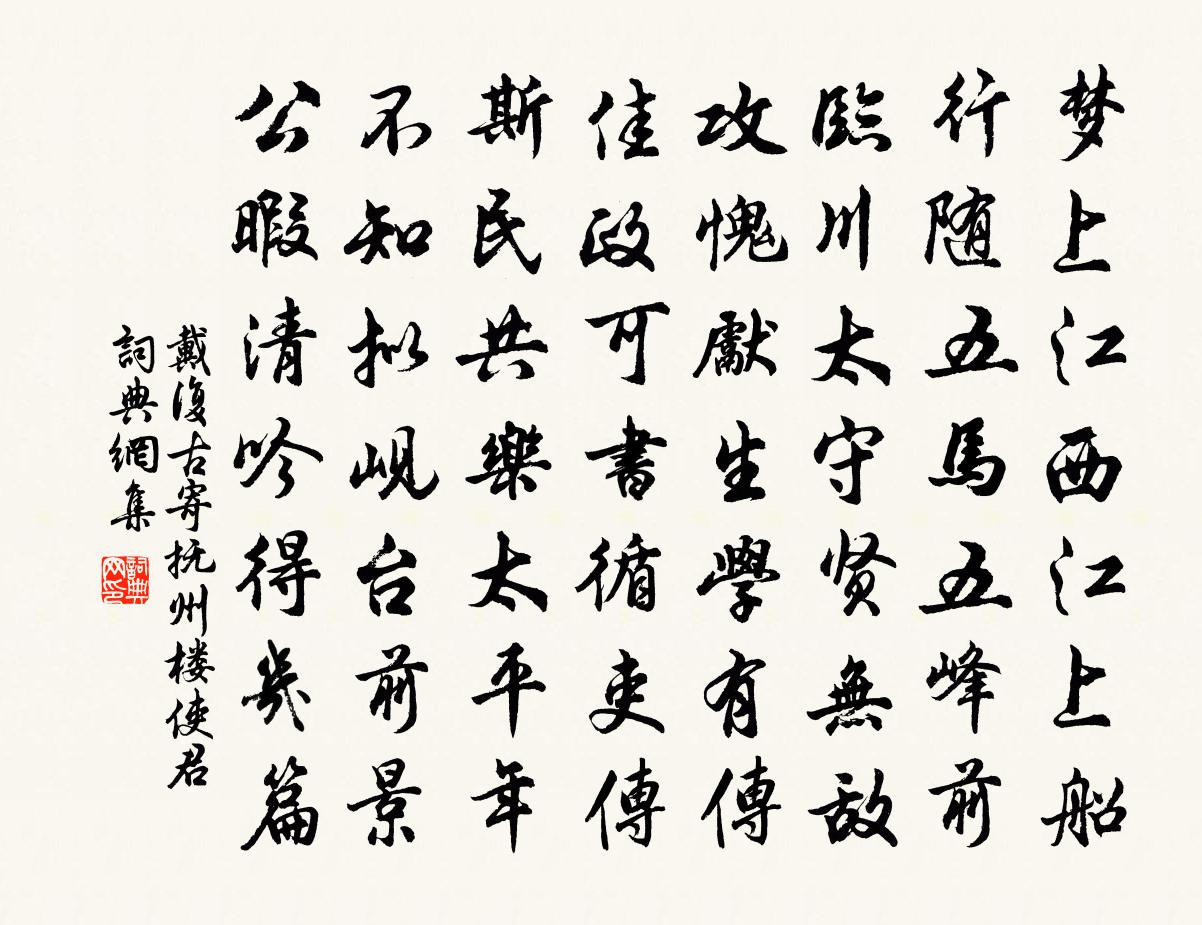 梦上江西江上船
行随五馬五峰前
臨川太守贤無敌
攻愧獻生學有傳
佳政可書循吏傳
斯民共樂太平年
不知拟岘台前景
公暇清吟得幾篇
戴復古寄抚州楼使君
詞典網集
詞典网印